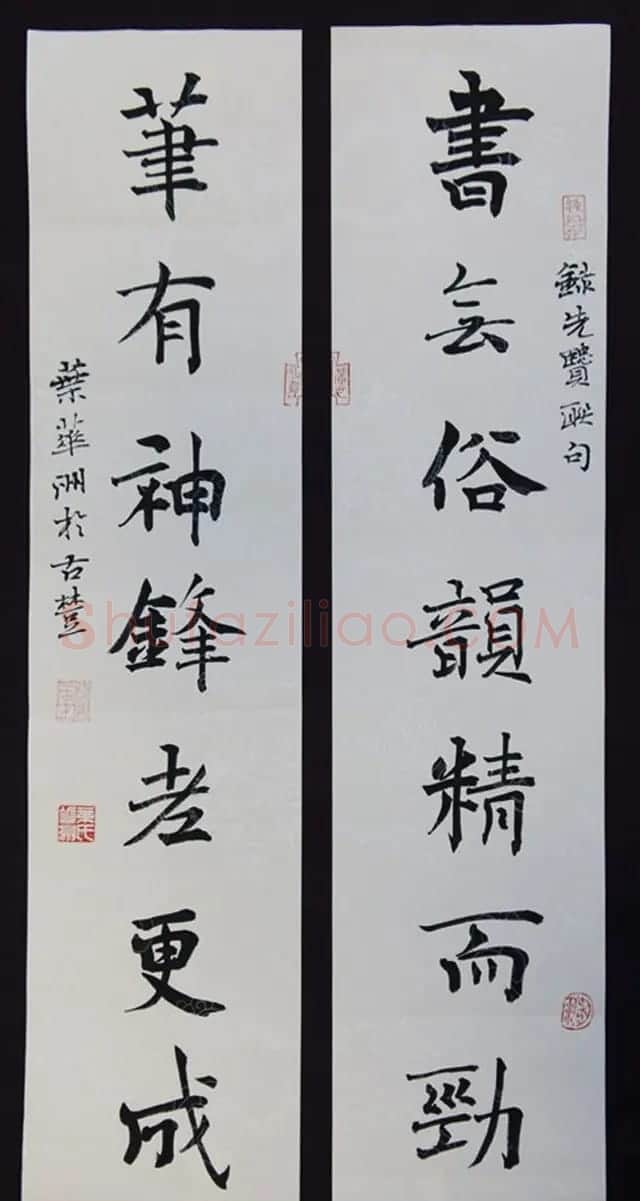 錄先賢聯句
書無俗韻精而勁
筆有神鋒老更成
葉華洲於古楚
Shufaziliao.COM